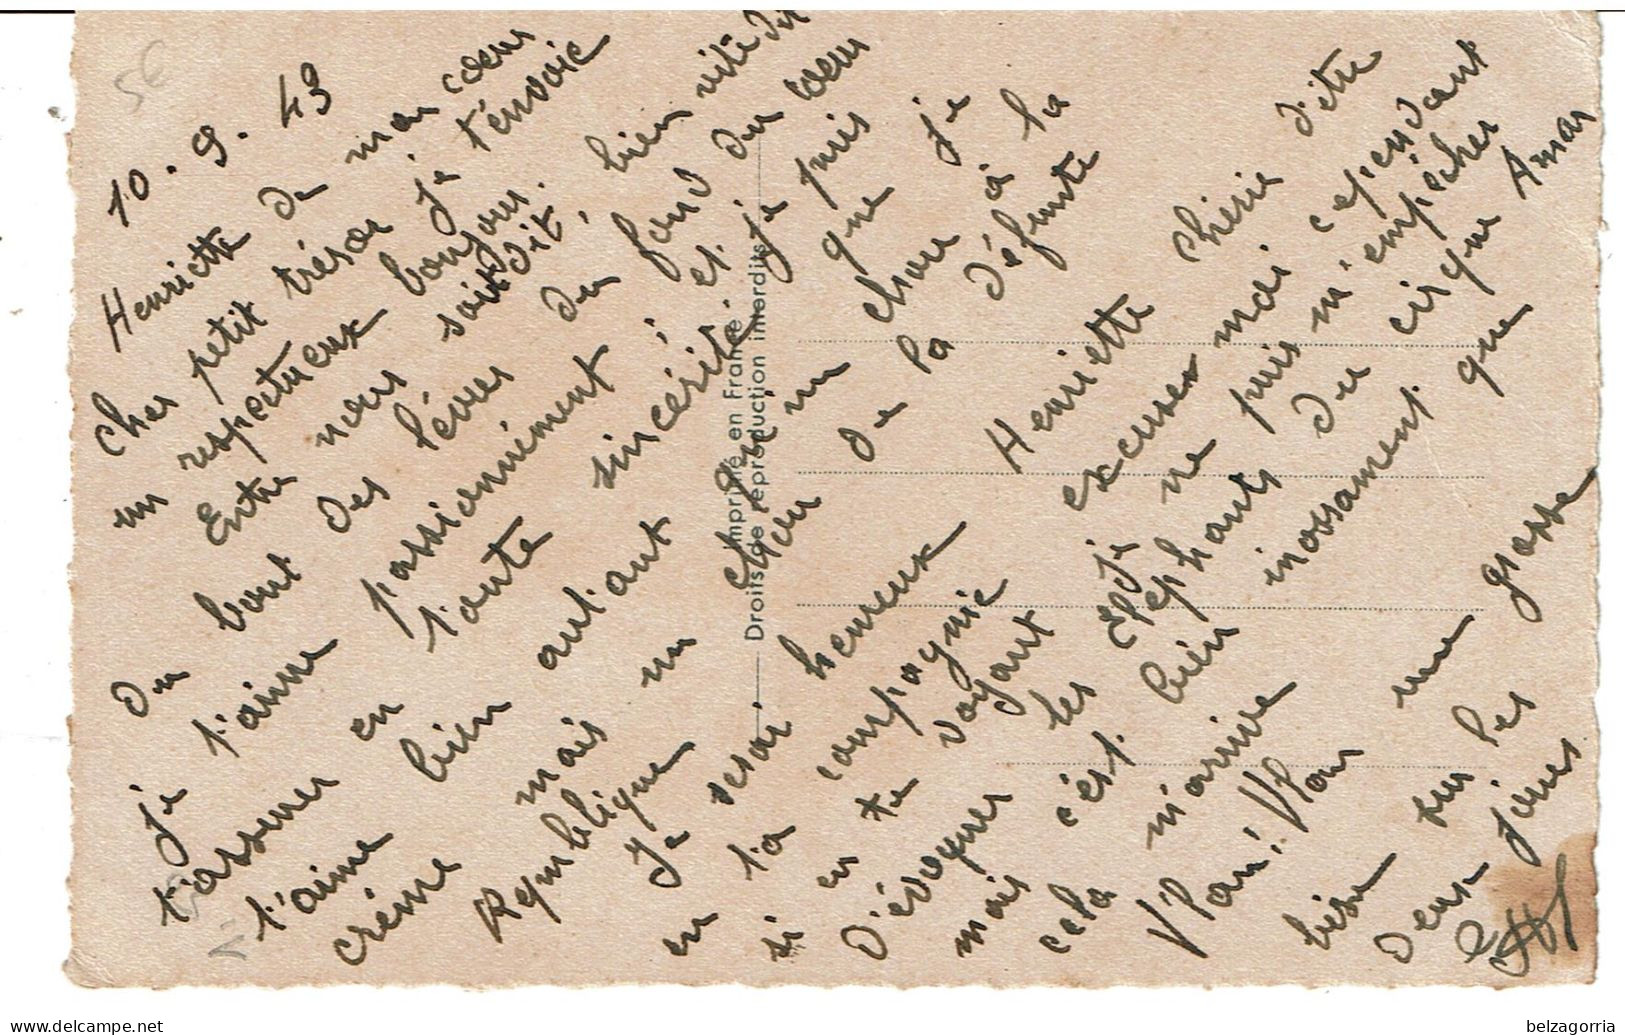 5€
10.9.43
Henriette de mon coeur
Cher petit trésor je t'envoie
un respectueux bonjour.
Entre nous soit dit, bien vite dit
du bout des lèvres du fond du coeur
je t'aime passionnément, et je puis
t'assurer en toute sincérité que je
t'aime bien autant qu'un chou à la
crème mais un chou de la défunte
République
Je serai heureux Henriette chérie d'être
en ta compagnie excuses moi cependant
si en te voyant je ne puis m'empêcher
d'évoquer les éléphants du cirque Amar
mais c'est bien inossament que
cela m'arrive
Vlan! Vlan une grosse
bise sur les
deux joues
Imprimé en France
Droits de reproduction interdits
belzagorria
www.delcampe.net